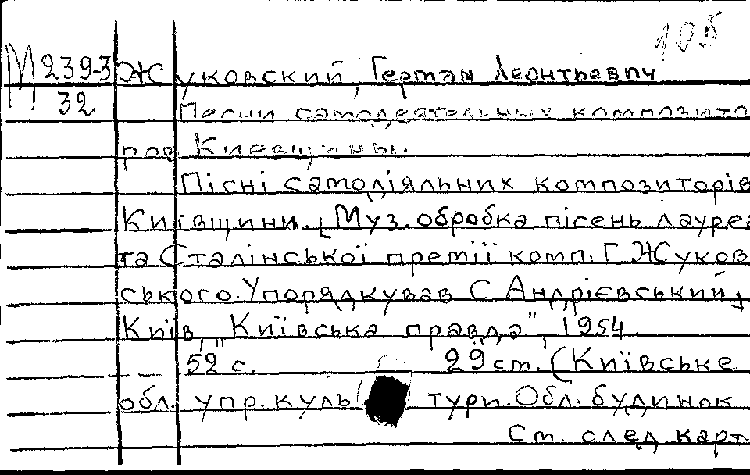 105
М 239-3 Жуковский, Герман Леонтьевич
32 Песни самодеятельных композито
ров Киевщины.
Пісні самодіяльних композиторів
Київщини. [Муз. обробка пісень лауреа
та Сталінської премії комп. Г. Жуков
ського. Упорядкував С. Андрієвський]
Київ, "Київська правда", 1954
52 с. 29 см. (Київське
обл. упр. куль тури. Обл. будинок
См. след. карт